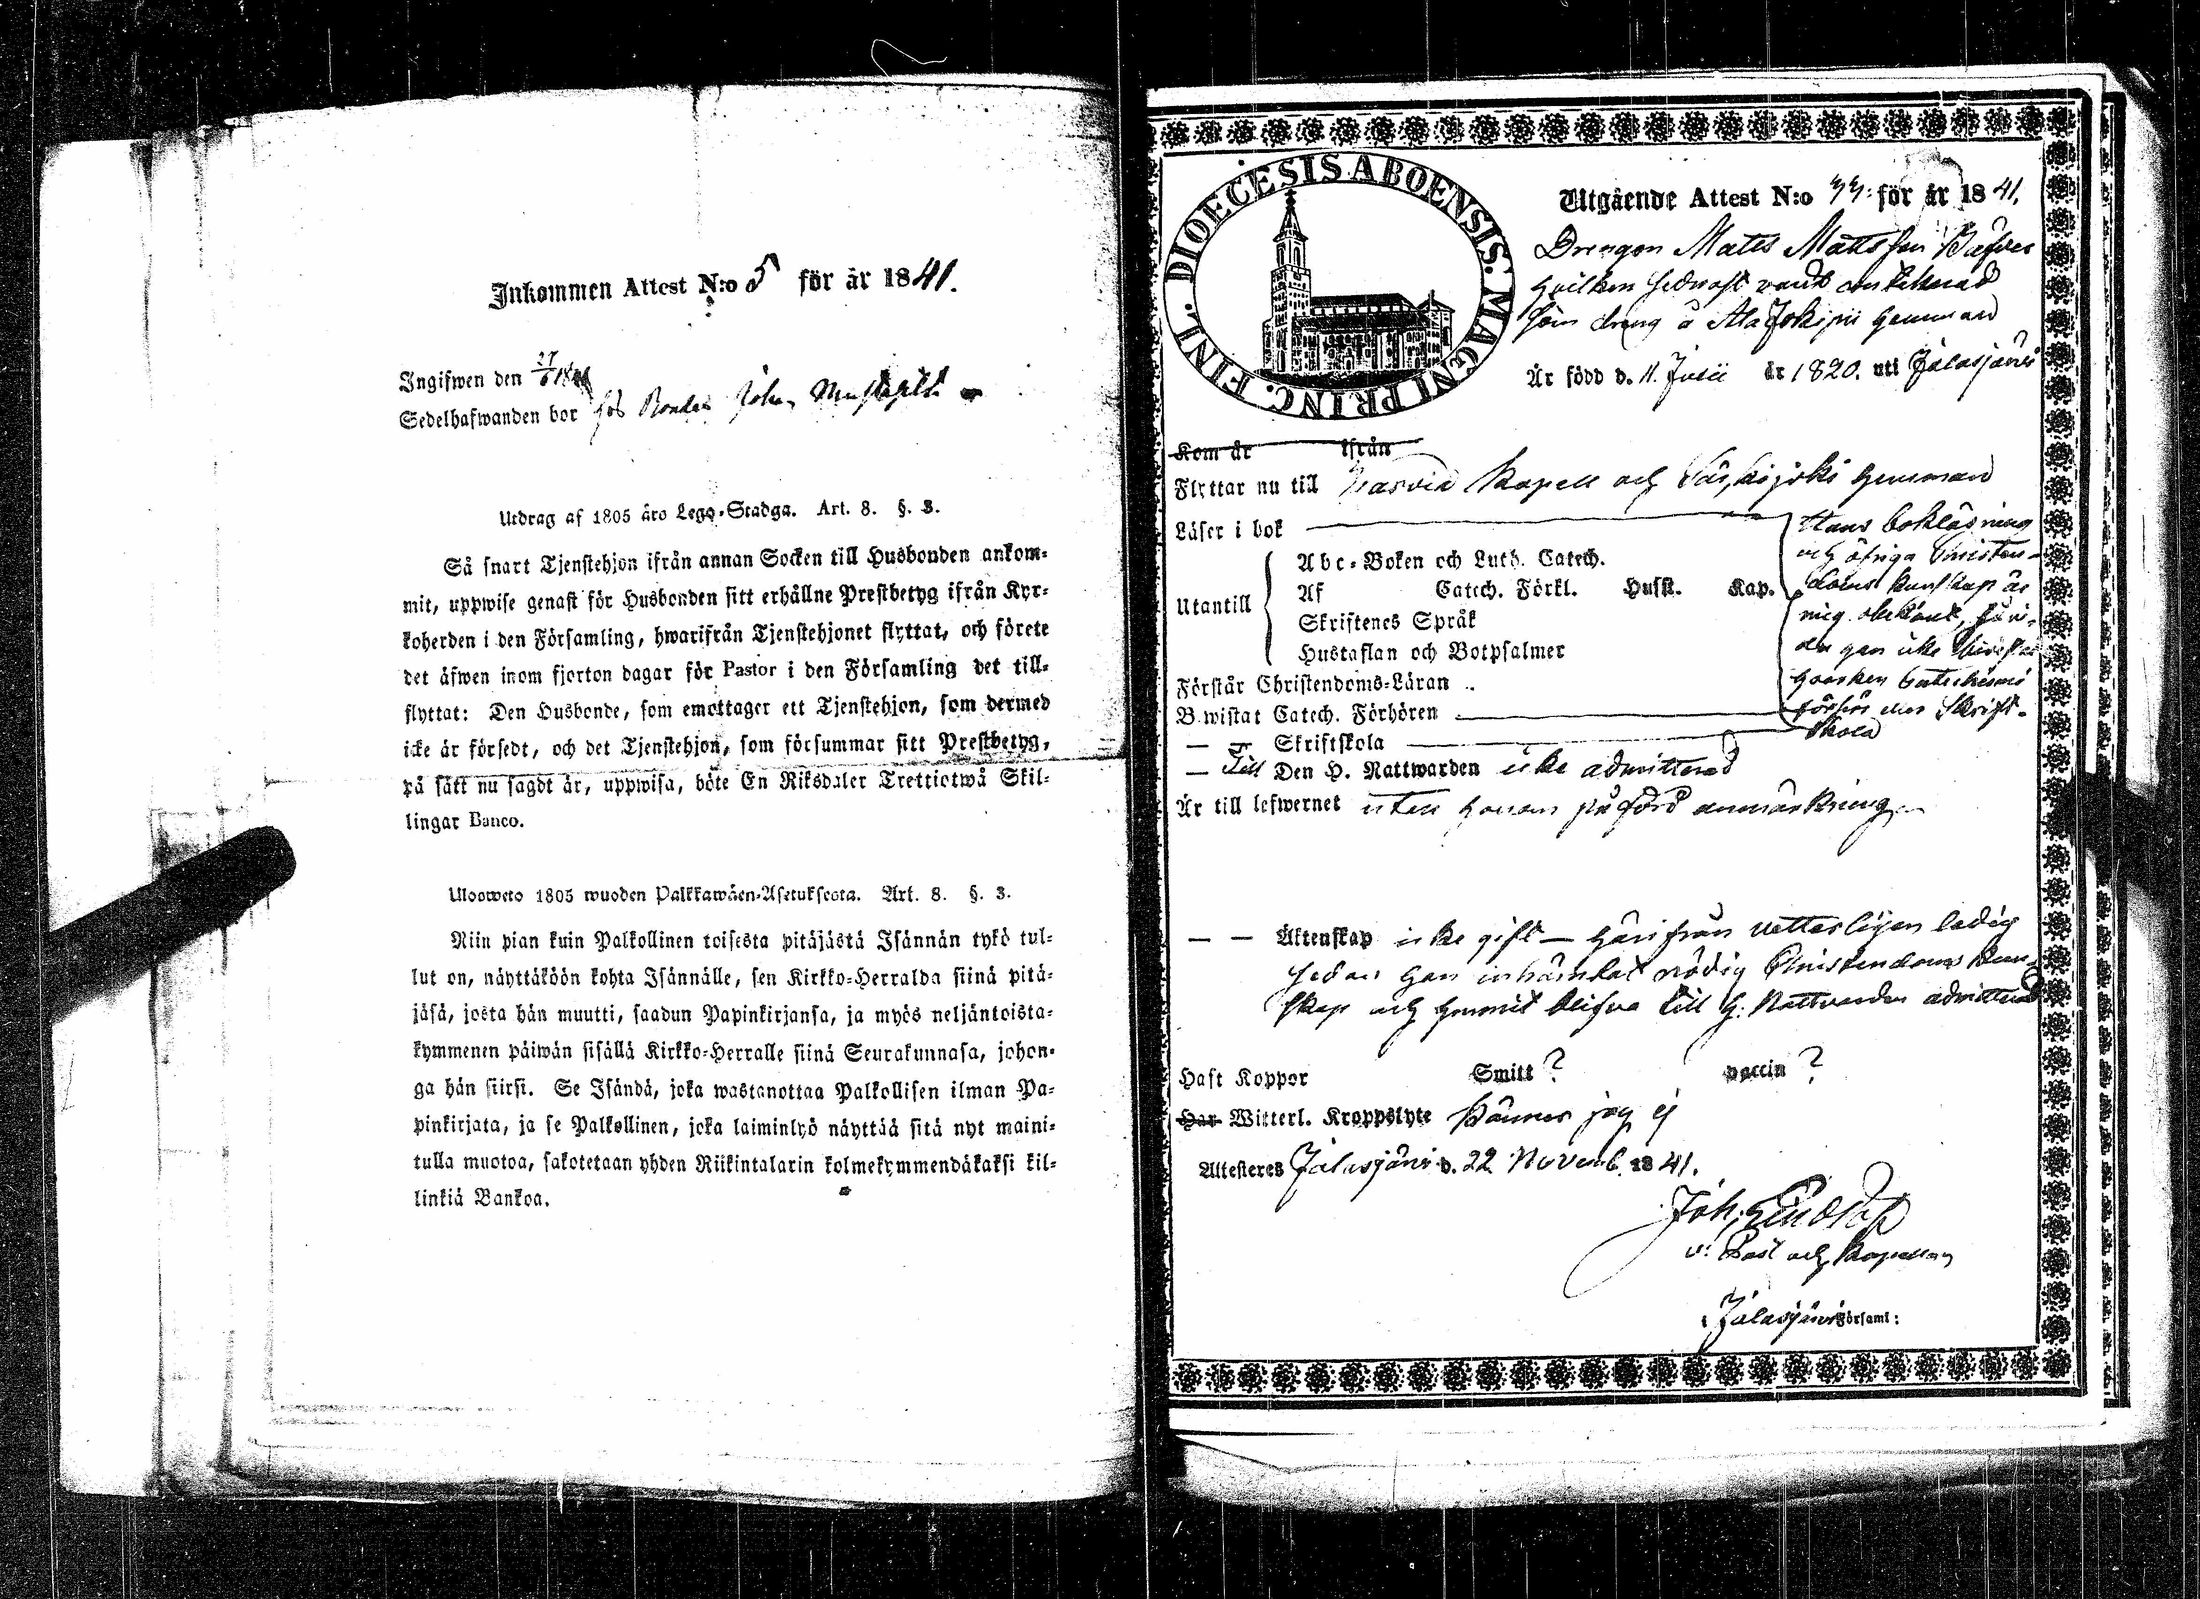 Inkommen Attest N:o 5 för år 1841.
Ingifwen den 27
Sedelhafwanden bor hos Bonden Johan
Utdrag af 1805 åro Lego-Stadga. Art. 8. §. 3.
Så snart Tjenstehjon ifrån annan Socken till Husbonden ankom-
mit, uppwise genast för Husbonden sitt erhållne Prestbetyg ifrån Kyr-
koherden i den Församling, hwarifrån Tjenstehjonet flyttat, och förete
det äfwen inom fjorton dagar för Pastor i den Församling det till-
flyttat: Den Husbonde, som emottager ett Tjenstehjon, som dermed
icke är försedt, och det Tjenstehjon, som försummar sitt Prestbetyg,
på sätt nu sagdt är, uppwisa, böte En Riksdaler Trettiotwå Skil-
lingar Banco.
Ulosweto 1805 wuoden Palkkawäen-Asetuksesta. Art. 8. §. 3.
Niin pian kuin Palkollinen toisesta pitäjästä Isännän tykö tul-
lut on, näyttäköön kohta Isännälle, sen Kirkko-Herralda siinä pitä-
jäsä, josta hän muutti, saadun Papinkirjansa, ja myös neljäntoista-
kymmenen päiwän sisällä Kirkko-Herralle siinä Seurakunnasa, johon-
ga hän siirsi. Se Isändä, joka wastanottaa Palkollisen ilman Pa-
pinkirjata, ja se Palkollinen, joka laiminlyö näyttää sitä nyt maini-
tulla muotoa, sakotetaan yhden Riikintalarin kolmekymmendäkaksi kil-
linkiä Bankoa.
DIOECESIS ABOENSIS. MAGNI PRINC. FINL.
Utgående Attest N:o 44 för år 1841.
Drengen Matts Mattsson
hvilken sednast varit antecknad
som dreng å Ala Jokipii hemman
Är född d. 11. Julii år 1820. uti Jalasjärvi
Kom år ifrån
Flyttar nu till Kapell och hemman
Läser i bok
Utantill
Abc-Boken och Luth. Catech.
Af Catech. Förkl. Husft. Kap.
Skriftenes Språk
Hustaflan och Botpsalmer
Förstår Christendoms-Läran
Bewistat Catech. Förhören
— — Skriftskola
Hans bokläsning
och öfriga Christen-
doms kunskap är
mig obekant, häri-
hvarken Catechismi
förhör eller Skrift-
skola
— Till Den H. Nattwarden icke admitterad
Är till lefwernet utan honom påförd anmärkning
— — Äktenskap icke gift — härifrån ledig
sedan han inhämtat nödig Christendoms kun-
skap och hunnit blifva till H. Nattvarden admitterad
Haft Koppor Smitt ? vaccin ?
Har Witterl. Kroppslyte känner jag ej
Attesteres Jalasjärvi d. 22 Novemb. 1841.
Joh.
v: Past och Kapellan
Jalasjärvi Församl: